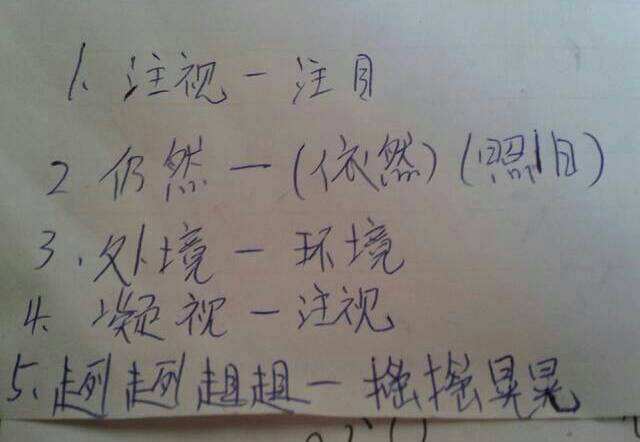 1. 注视一注目
2 仍然一(依然)(照旧)
3.外境一环境
4. 凝视一注视
5.趔趔趄趄一摇摇晃晃